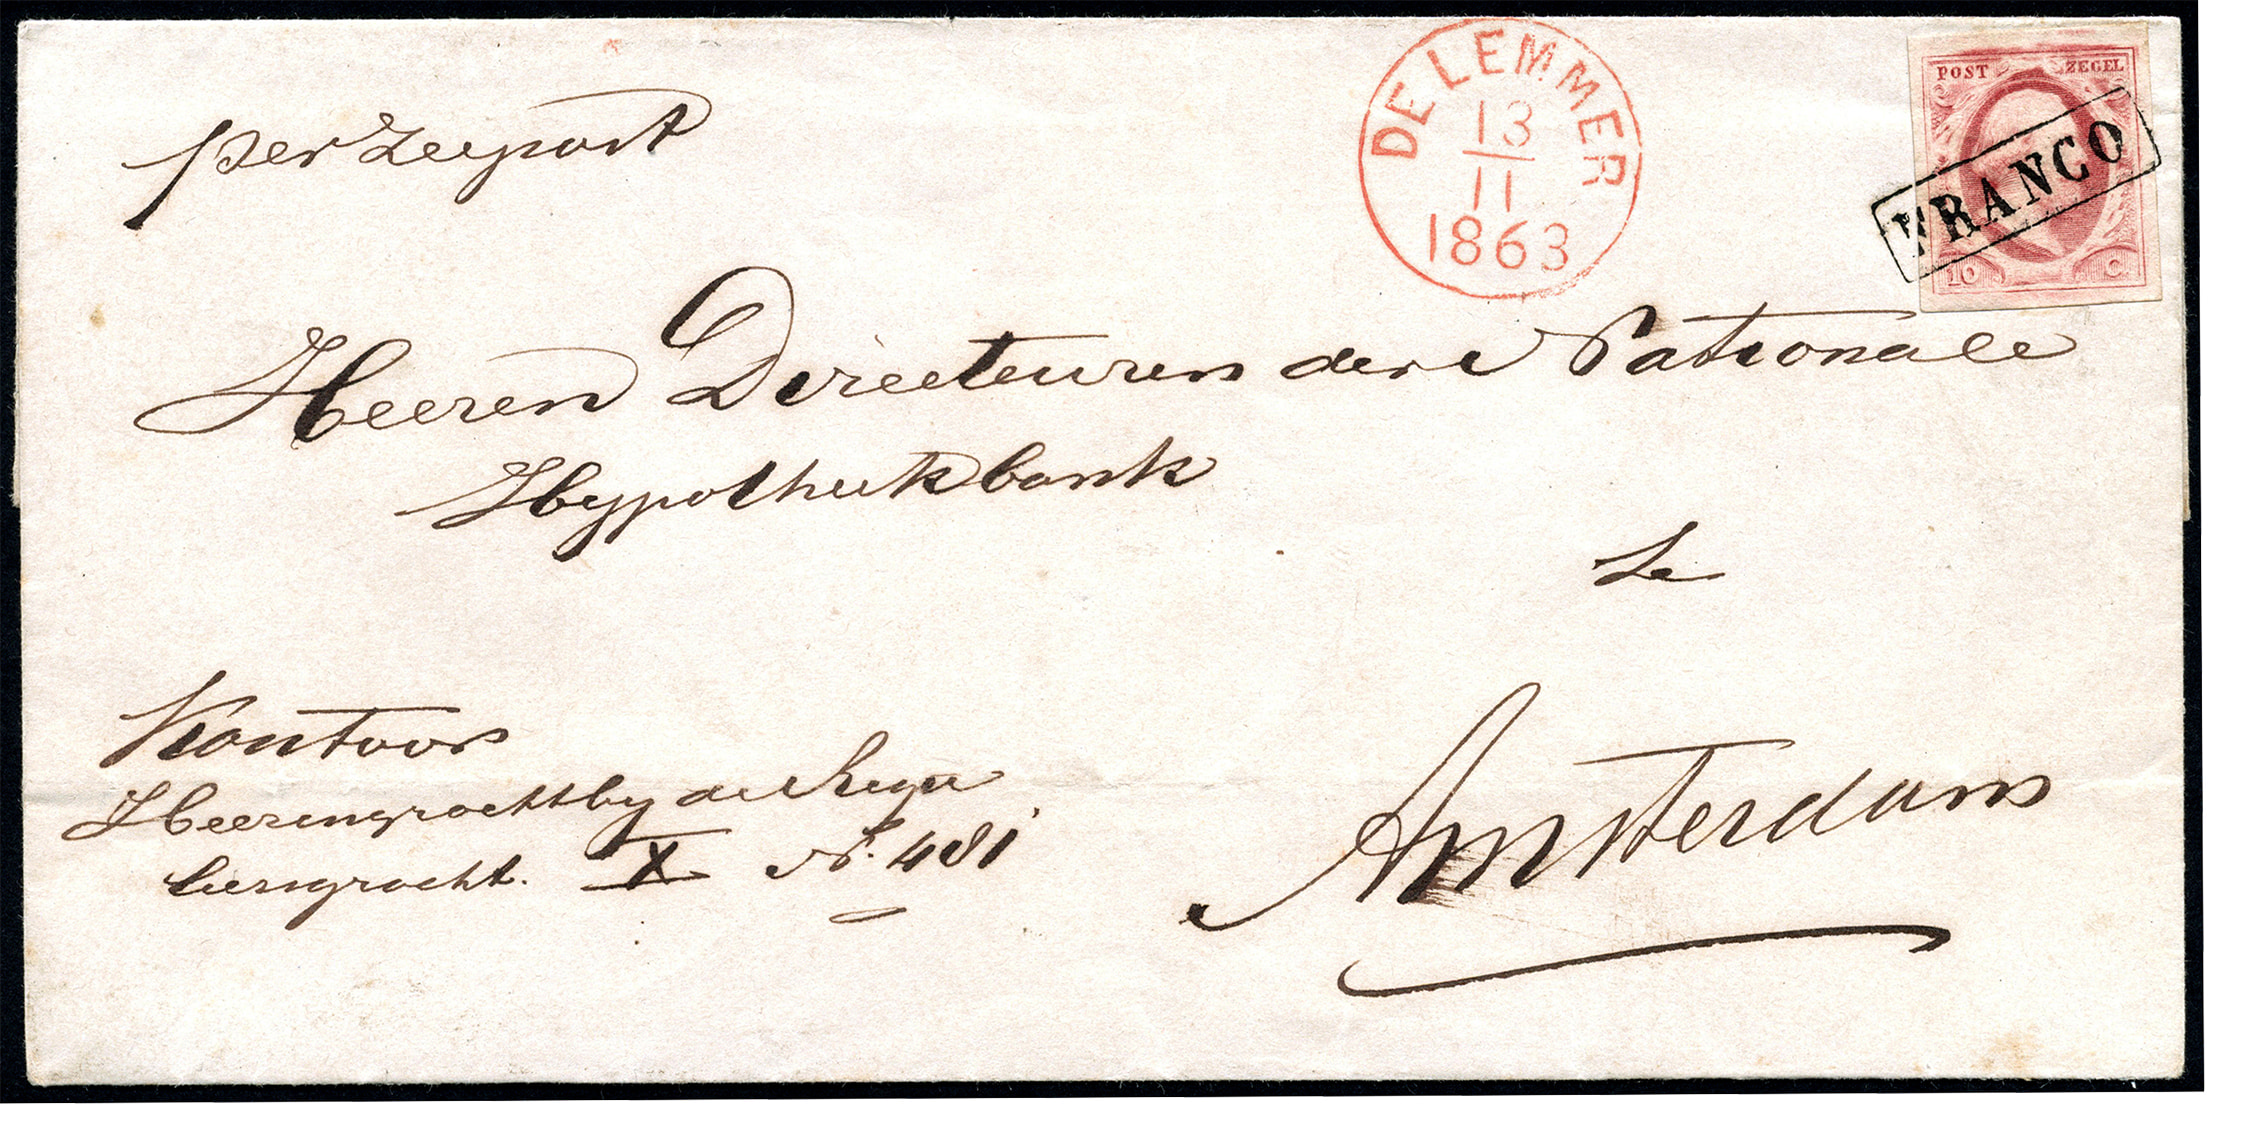 per Zeepost
DE LEMMER
13
11
1863
POST ZEGEL
FRANCO
10 C.
Heeren Directeuren der Nationale
Hypotheekbank
Te
Kontoor
Heerengracht by de
gracht. X N. 481
Amsterdam